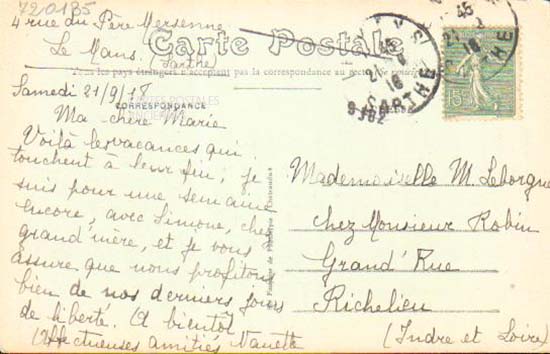 720185
4 rue du Père Mersenne
Le Mans. (Sarthe)
Carte Postale
Tous les pays étrangers n'acceptent pas la correspondance au recto
Samedi 21/9/18
CORRESPONDANCE
Ma chère Marie
Voilà les vacances qui
touchent à leur fin; je
suis pour une semaine
encore, avec Simone, chez
grand'mère, et je vous
assure que nous profitons
bien de nos derniers jours
de liberté. A bientôt
Affectueuses amitiés Nanette
LE MANS
SARTHE
45
21 9
18
15
Mademoiselle M. Leborgne
chez Monsieur Robin
Grand'Rue
Richelieu
(Indre et Loire)